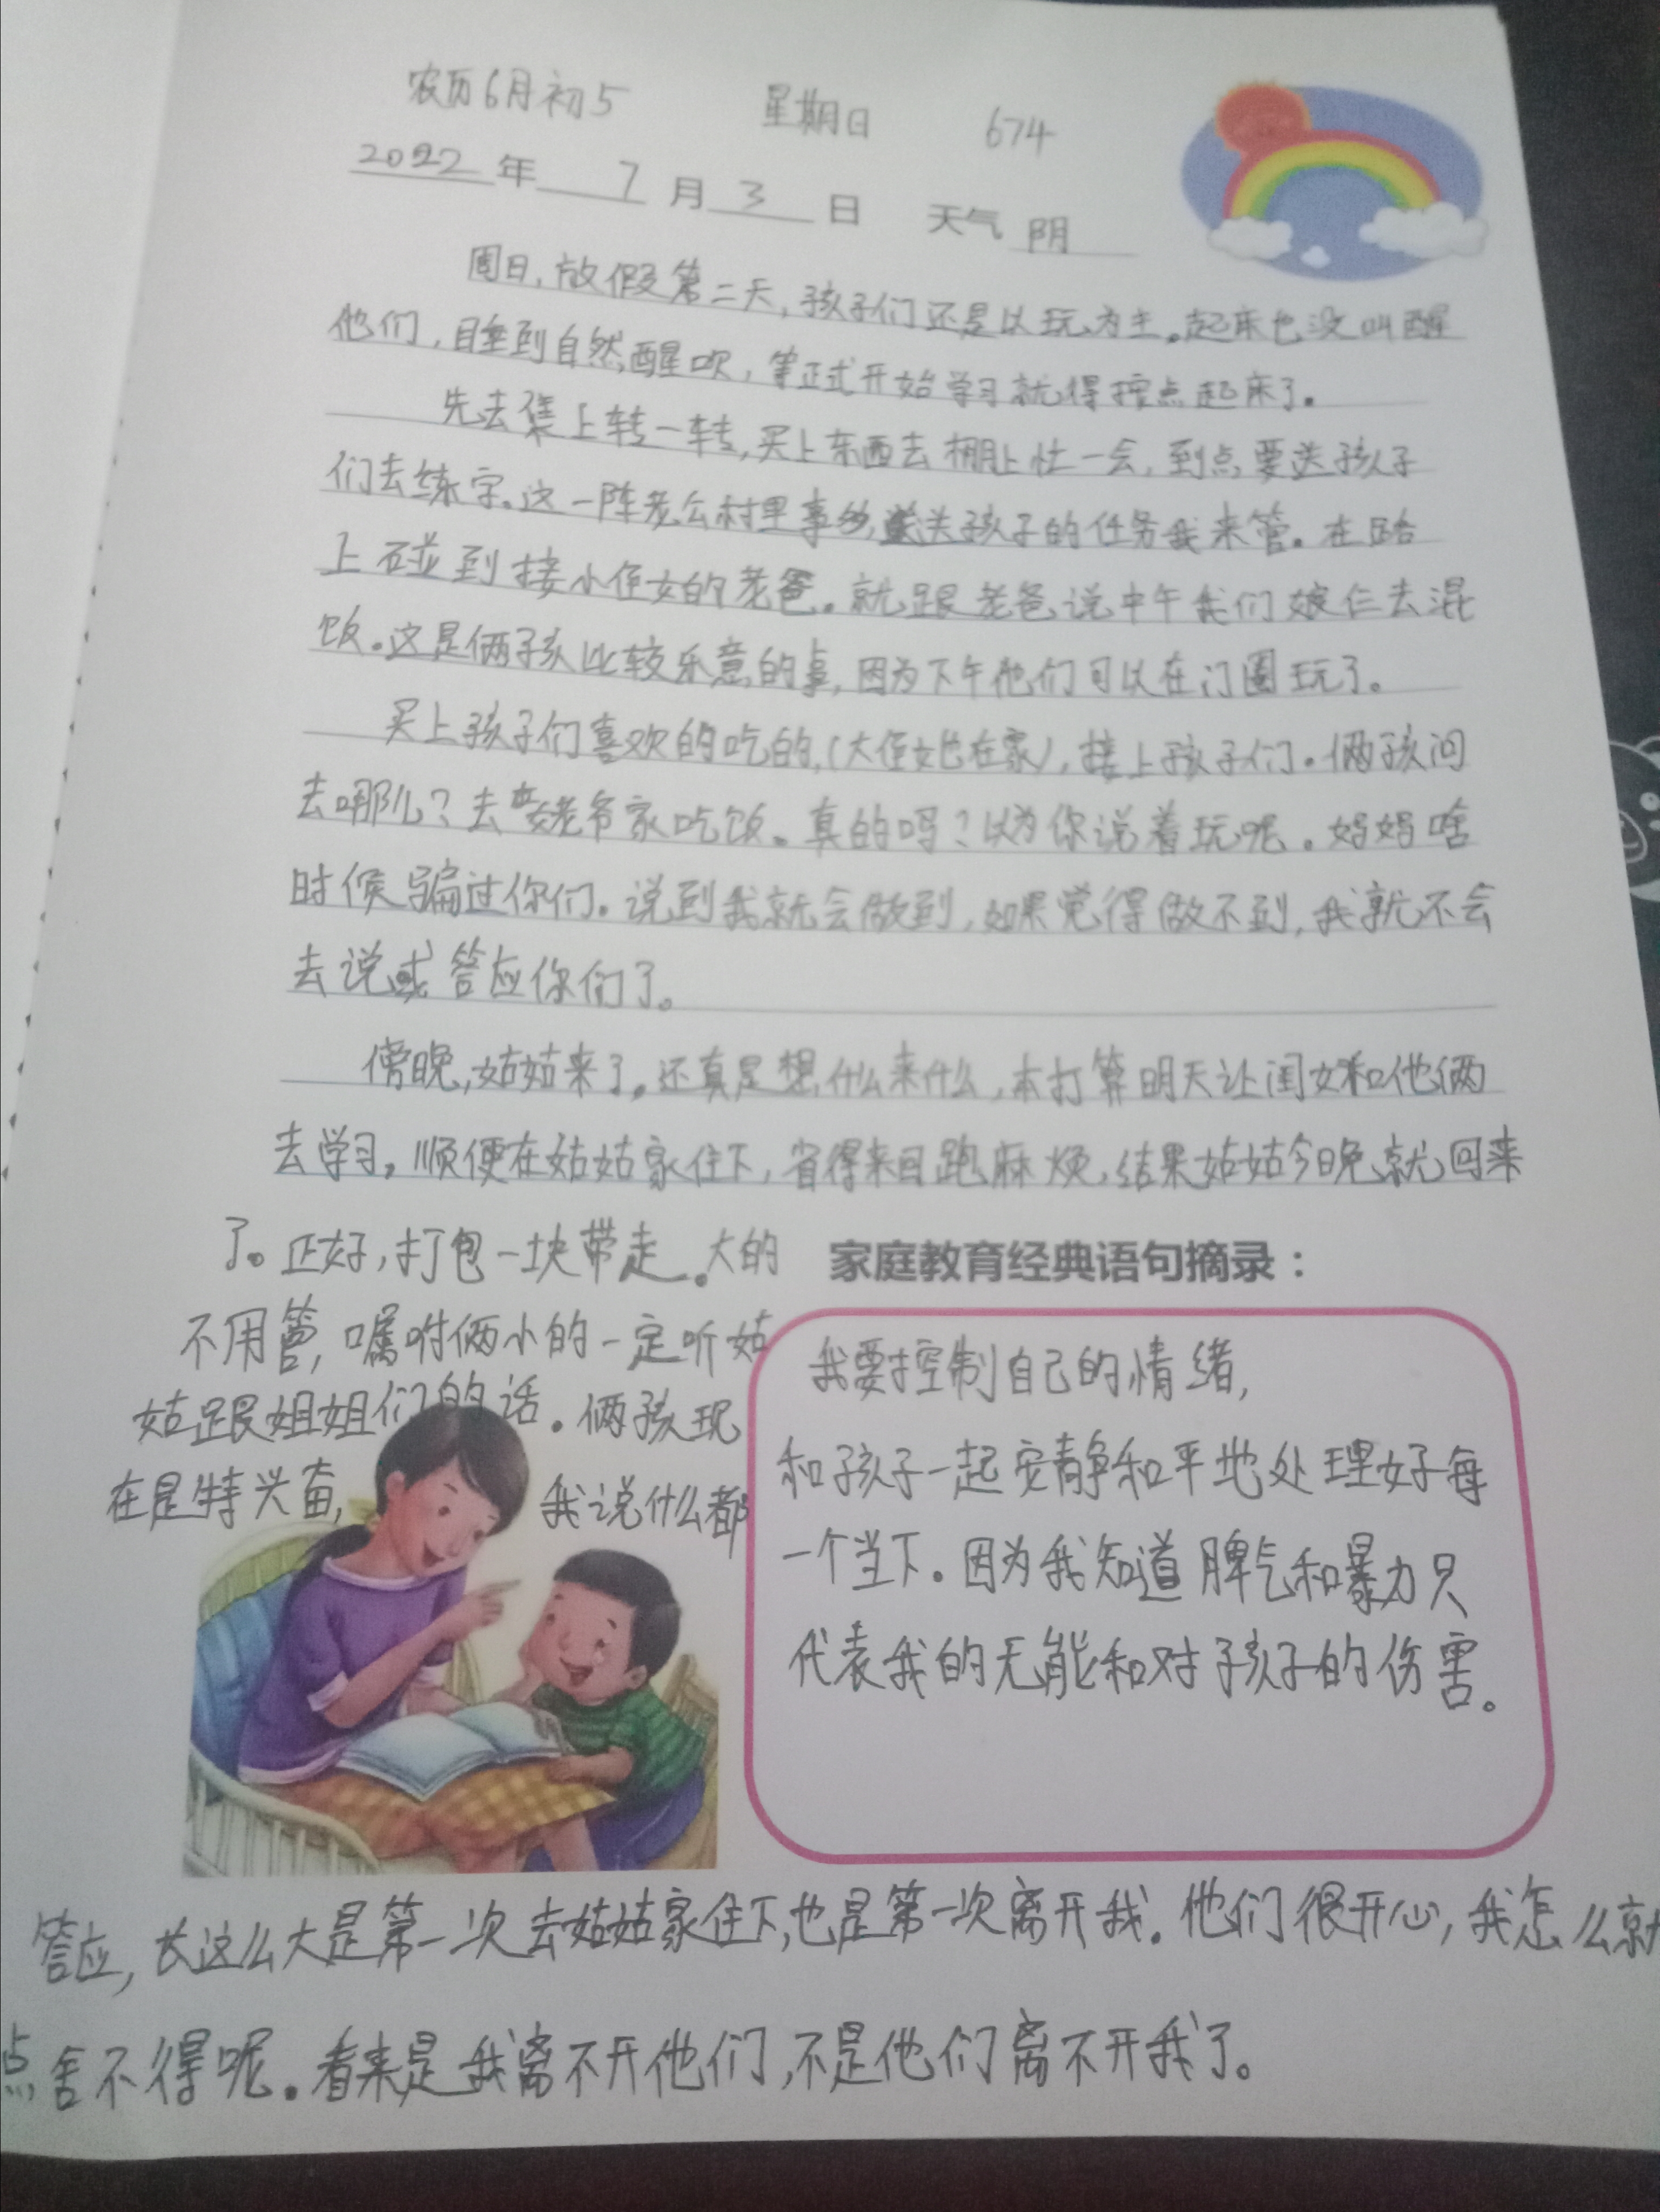 农历6月初5 星期日 674
2022年7月3日 天气 阴
周日,放假第二天,孩子们还是以玩为主。起床也没叫醒
他们,睡到自然醒吹,等正式开始学习就得按点起床了。
先去集上转一转,买上东西去棚上忙一会,到点要送孩子
们去练字。这一阵老公村里事多,送孩子的任务我来管。在路
上碰到接小侄女的老爸。就跟老爸说中午我们娘仨去混
饭。这是俩孩比较乐意的事,因为下午他们可以在门圈玩了。
买上孩子们喜欢的吃的,(大侄女也在家),接上孩子们。俩孩问
去哪儿?去老爷家吃饭。真的吗?以为你说着玩呢。妈妈啥
时候骗过你们。说到我就会做到,如果觉得做不到,我就不会
去说或答应你们了。
傍晚,姑姑来了。还真是想什么来什么,本打算明天让闺女和他俩
去学习,顺便在姑姑家住下,省得来回跑麻烦,结果姑姑今晚就回来
了。正好,打包一块带走。大的
不用管,嘱咐俩小的一定听姑
姑跟姐姐们的话。俩孩现
在是特兴奋,我说什么都
家庭教育经典语句摘录:
我要控制自己的情绪,
和孩子一起安静和平地处理好每
一个当下。因为我知道脾气和暴力只
代表我的无能和对孩子的伤害。
答应,长这么大是第一次去姑姑家住下,也是第一次离开我。他们很开心,我怎么就
点舍不得呢。看来是我离不开他们,不是他们离不开我了。